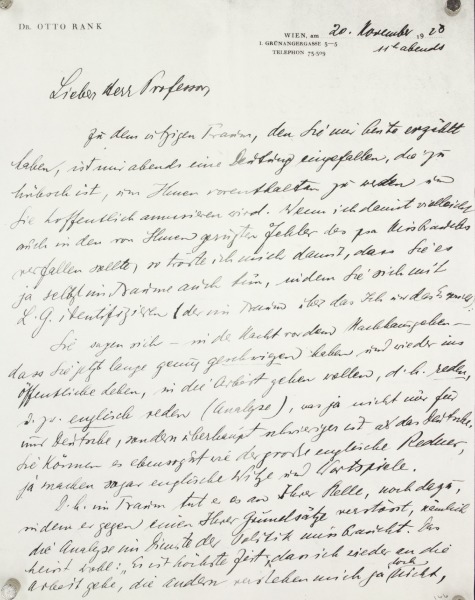 Dr. OTTO RANK
WIEN, am 20. November 1923
I. GRÜNANGERGASSE 3-5
TELEPHON 75-5-05
11h abends
Lieber Herr Professor,
Zu dem witzigen Traum, den Sie mir heute erzählt
haben, ist mir abends eine Deutung eingefallen, die zu
hübsch ist, um Ihnen vorenthalten zu werden und
Sie hoffentlich amusieren wird. Wenn ich damit vielleicht
auch in den von Ihnen gerügten Fehler des Missbrauches
verfallen sollte, so tröste ich mich damit, dass Sie es
ja selbst im Traume auch tun, indem Sie sich mit
L. G. identifizieren (der im Traum über das Ich und das Es
Sie sagen sich – in der Nacht vor dem Nachhausgehen –
dass Sie jetzt lange genug geschwiegen haben und wieder ins
öffentliche Leben, in die Arbeit gehen wollen, d. h. reden,
u. zw. englisch reden (Analyse), was ja nicht nur für
uns Deutsche, sondern überhaupt schwieriger ist als das Deutsche.
Sie können es ebensogut wie der grosse englische Redner,
ja machen sogar englische Witze und Wortspiele.
D. h. im Traum tut er es an Ihrer Stelle, noch dazu,
indem er gegen einen Ihrer Grundsätze verstösst, nämlich
die Analyse im Dienste der Politik missbraucht. Das
heisst wohl: „Es ist höchste Zeit, dass ich wieder an die
Arbeit gehe, die andern verstehen mich ja doch nicht,